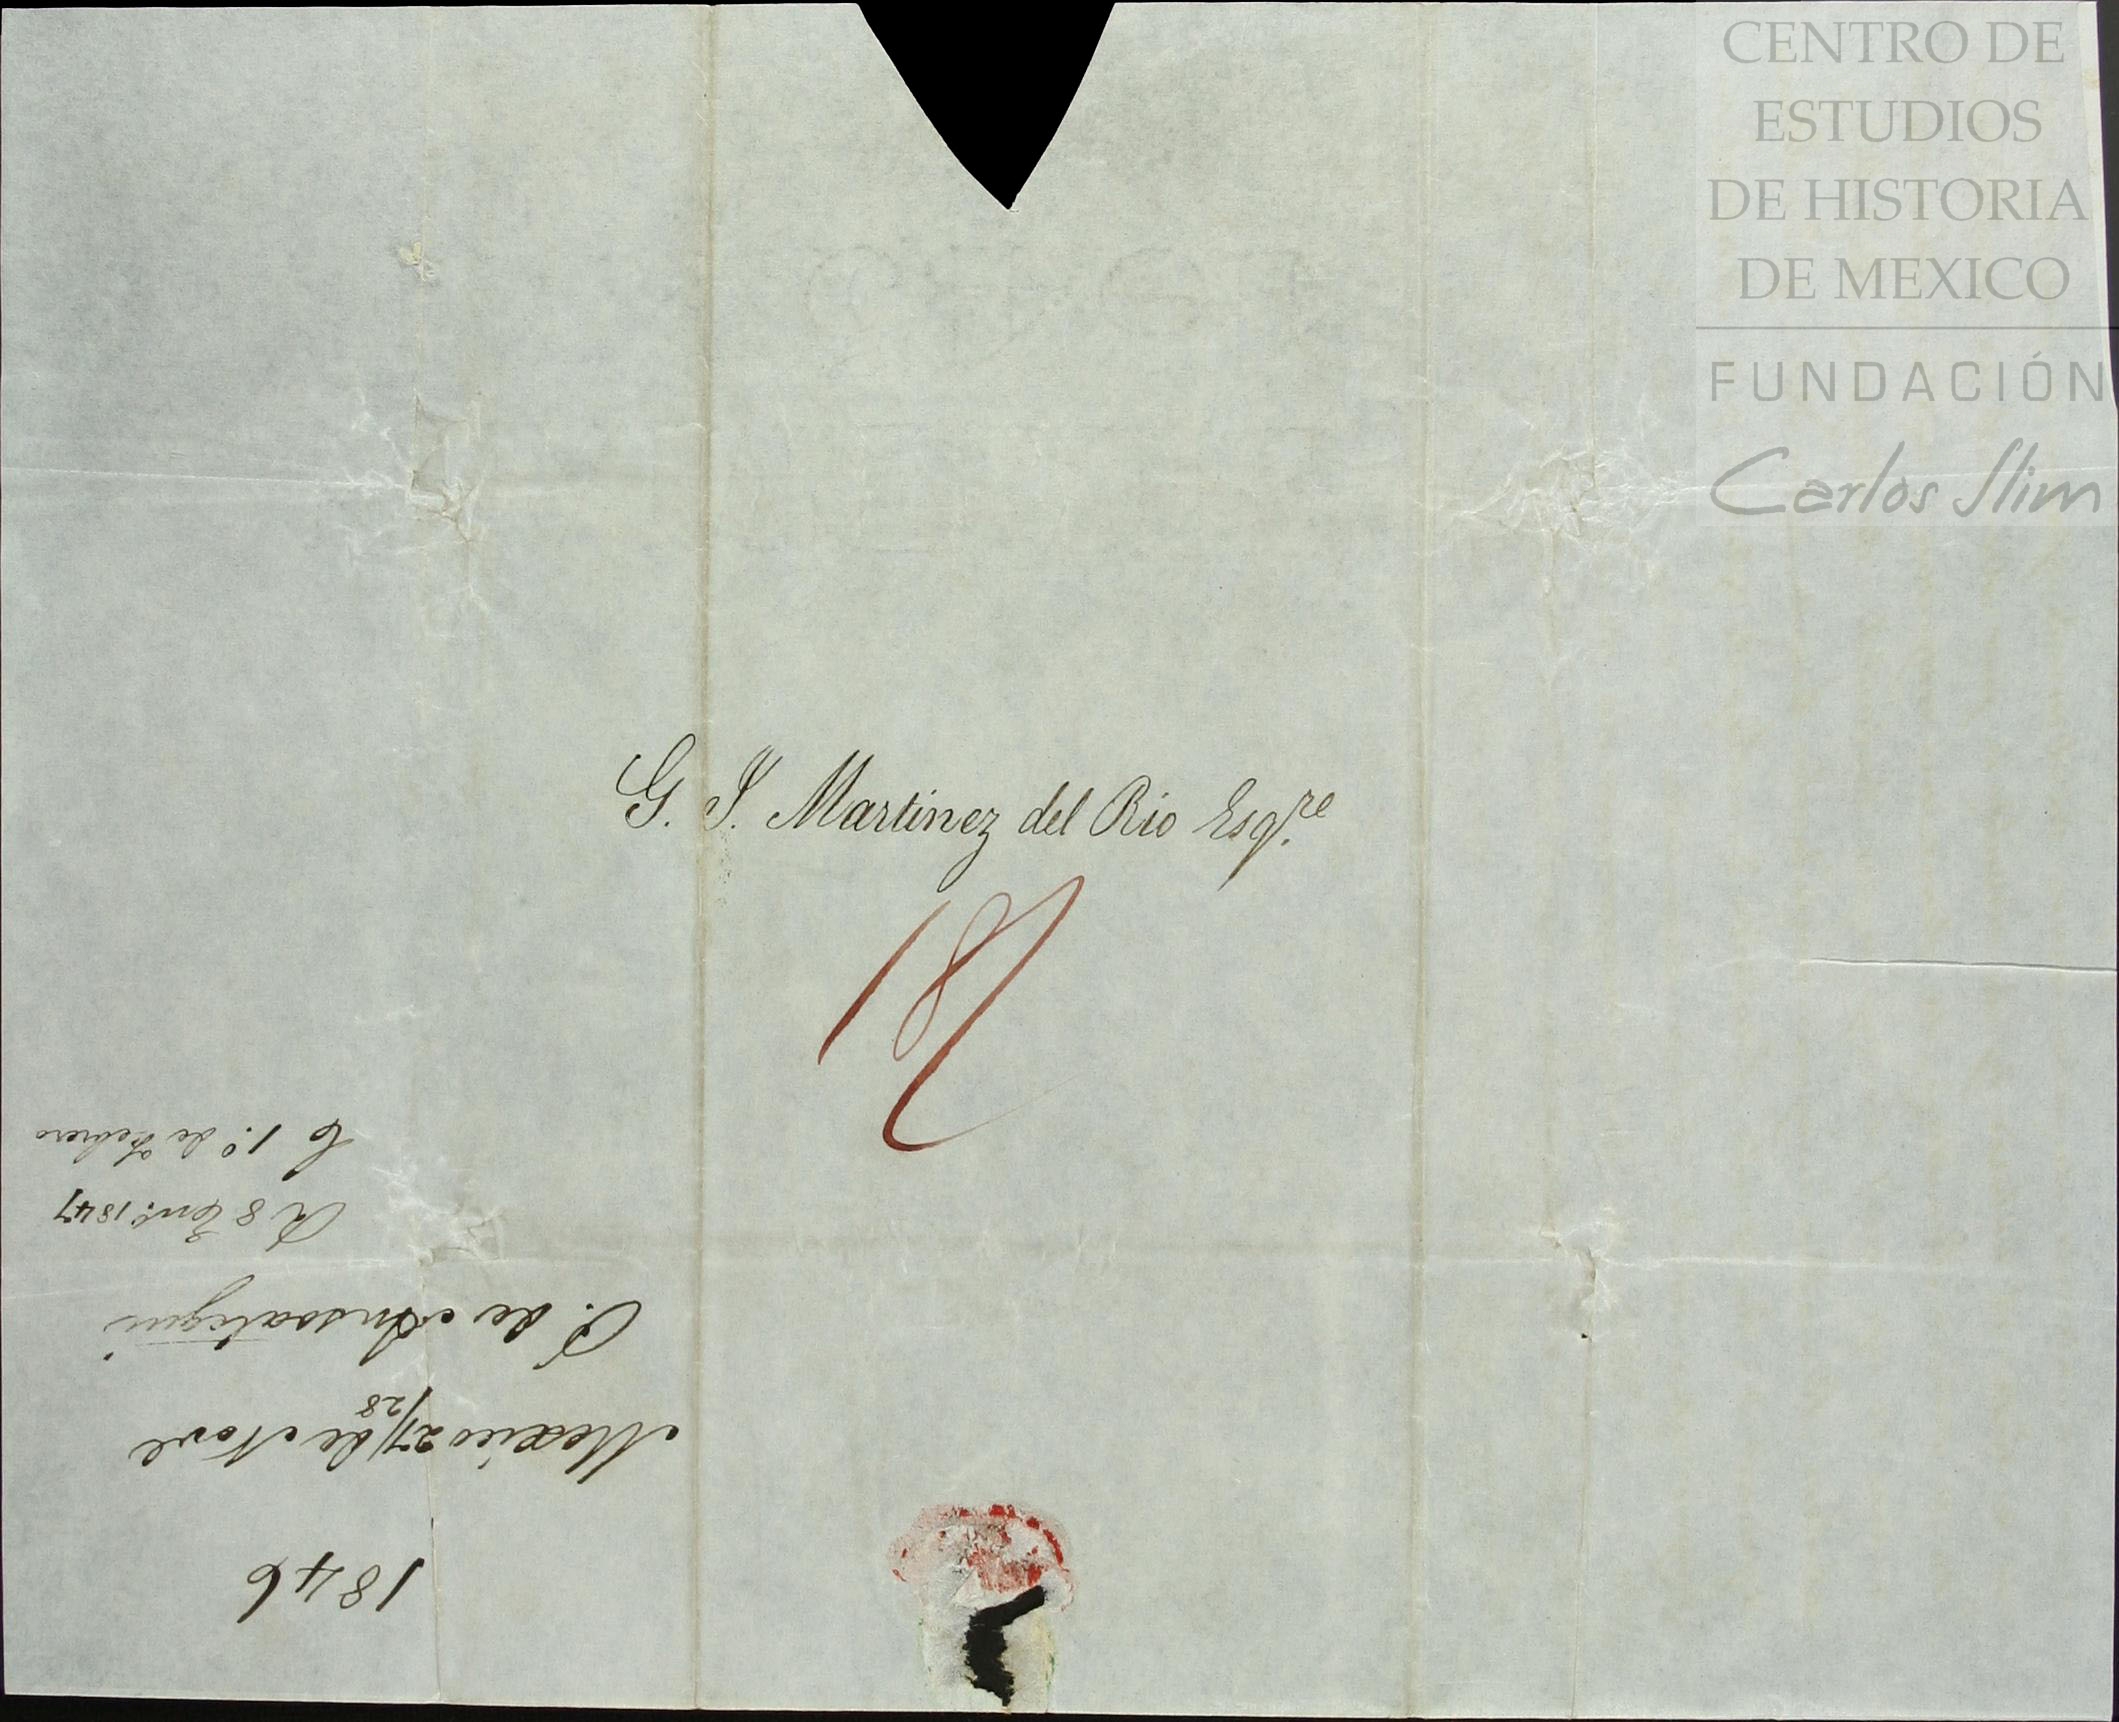 CENTRO DE
ESTUDIOS
DE HISTORIA
DE MEXICO
FUNDACIÓN
Carlos Slim
G. J. Martinez del Rio Esqre.
1846
Mexico 27/28 de Nove
J. de Ansoategui
R 8 Eno. 1847
C 1.º de Febrero